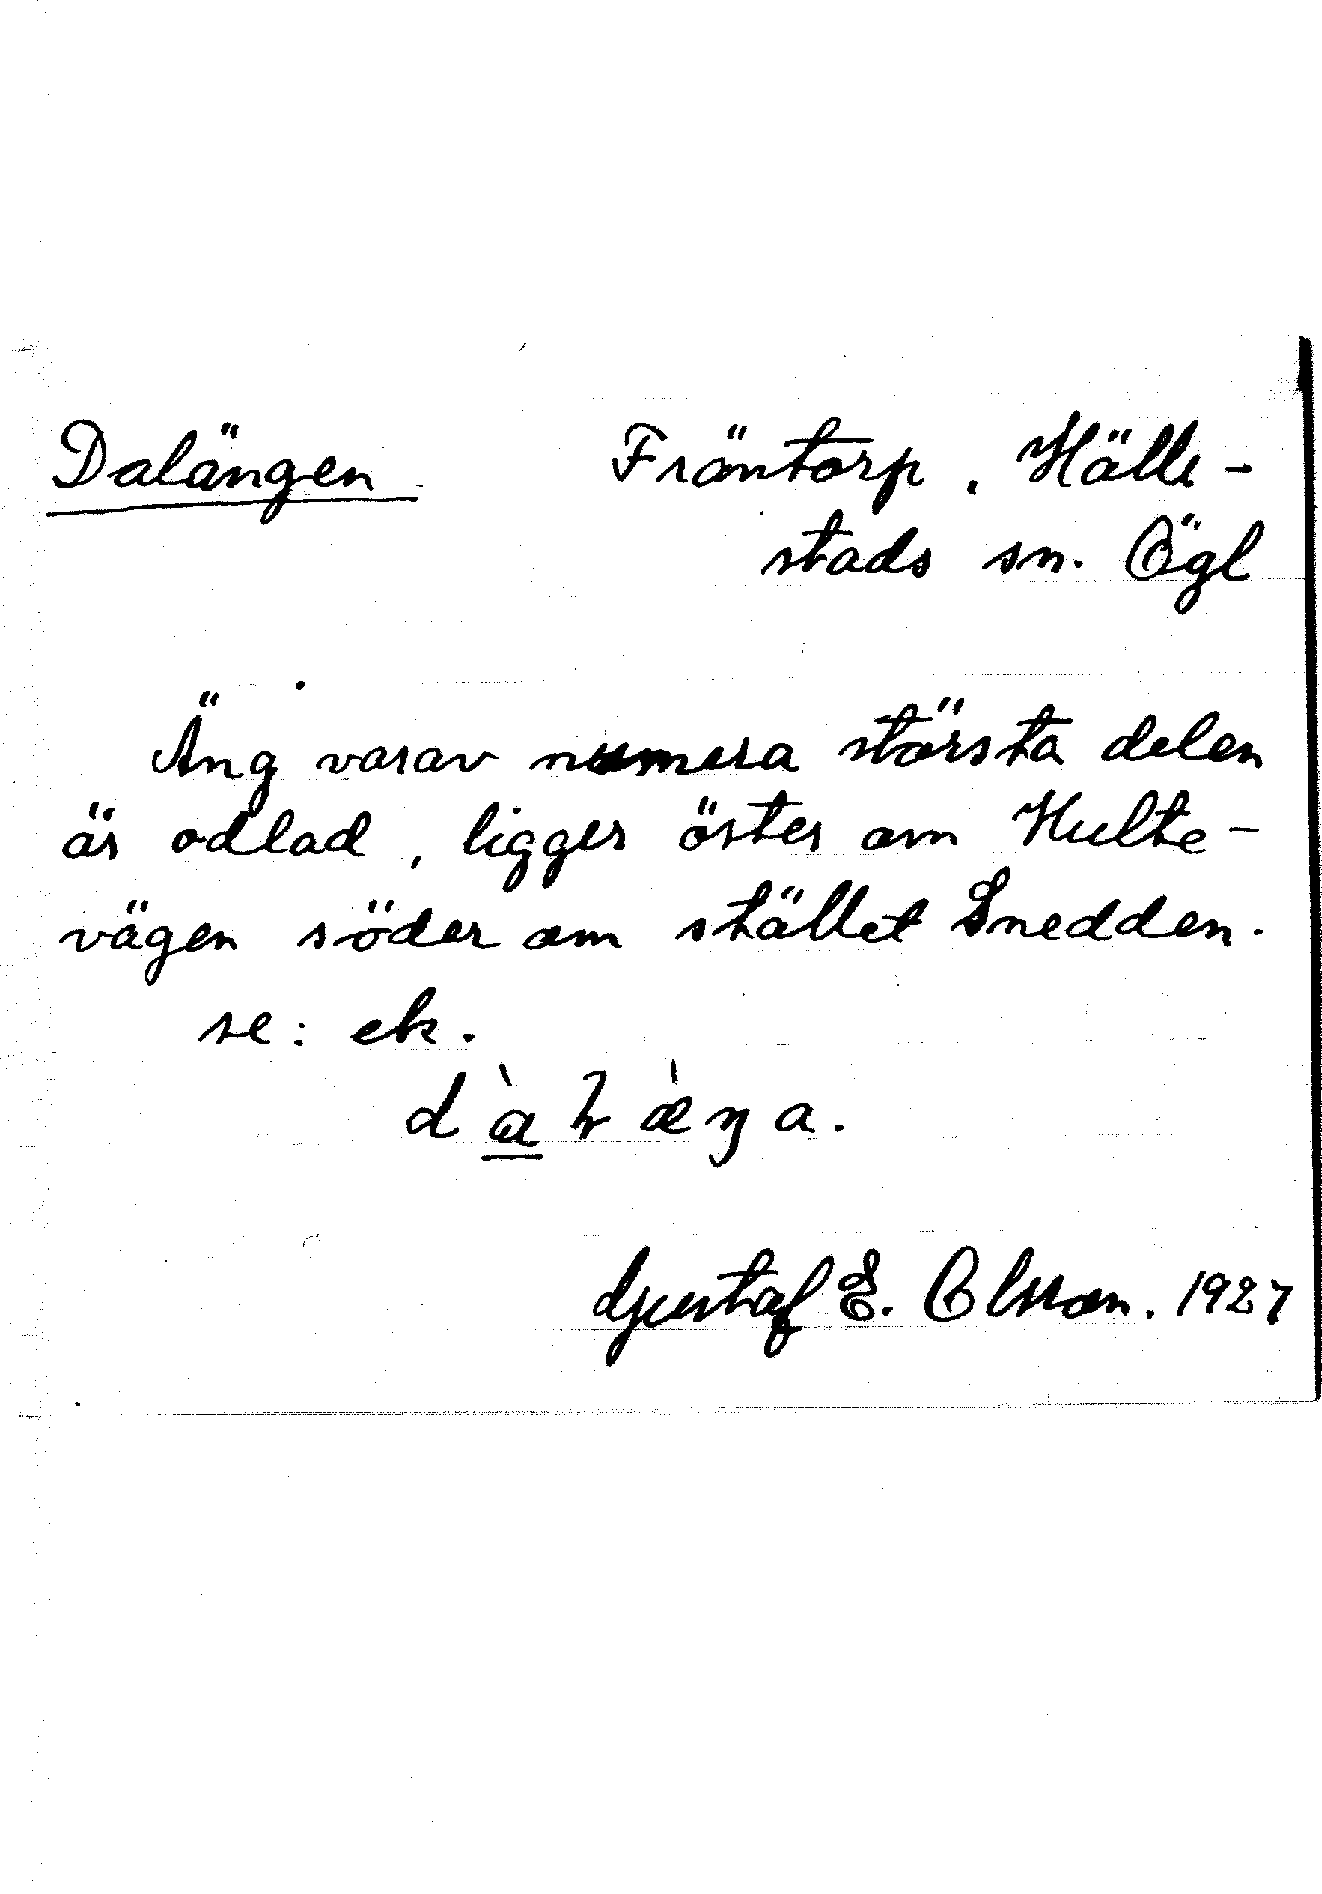 Dalängen Fräntorp, Hälle-
stads sn. Ögl
Äng varav numera största delen
är odlad, ligger öster om Hulte-
vägen söder om stället Snedden.
se: ek.
Gustaf E. Olsson. 1927